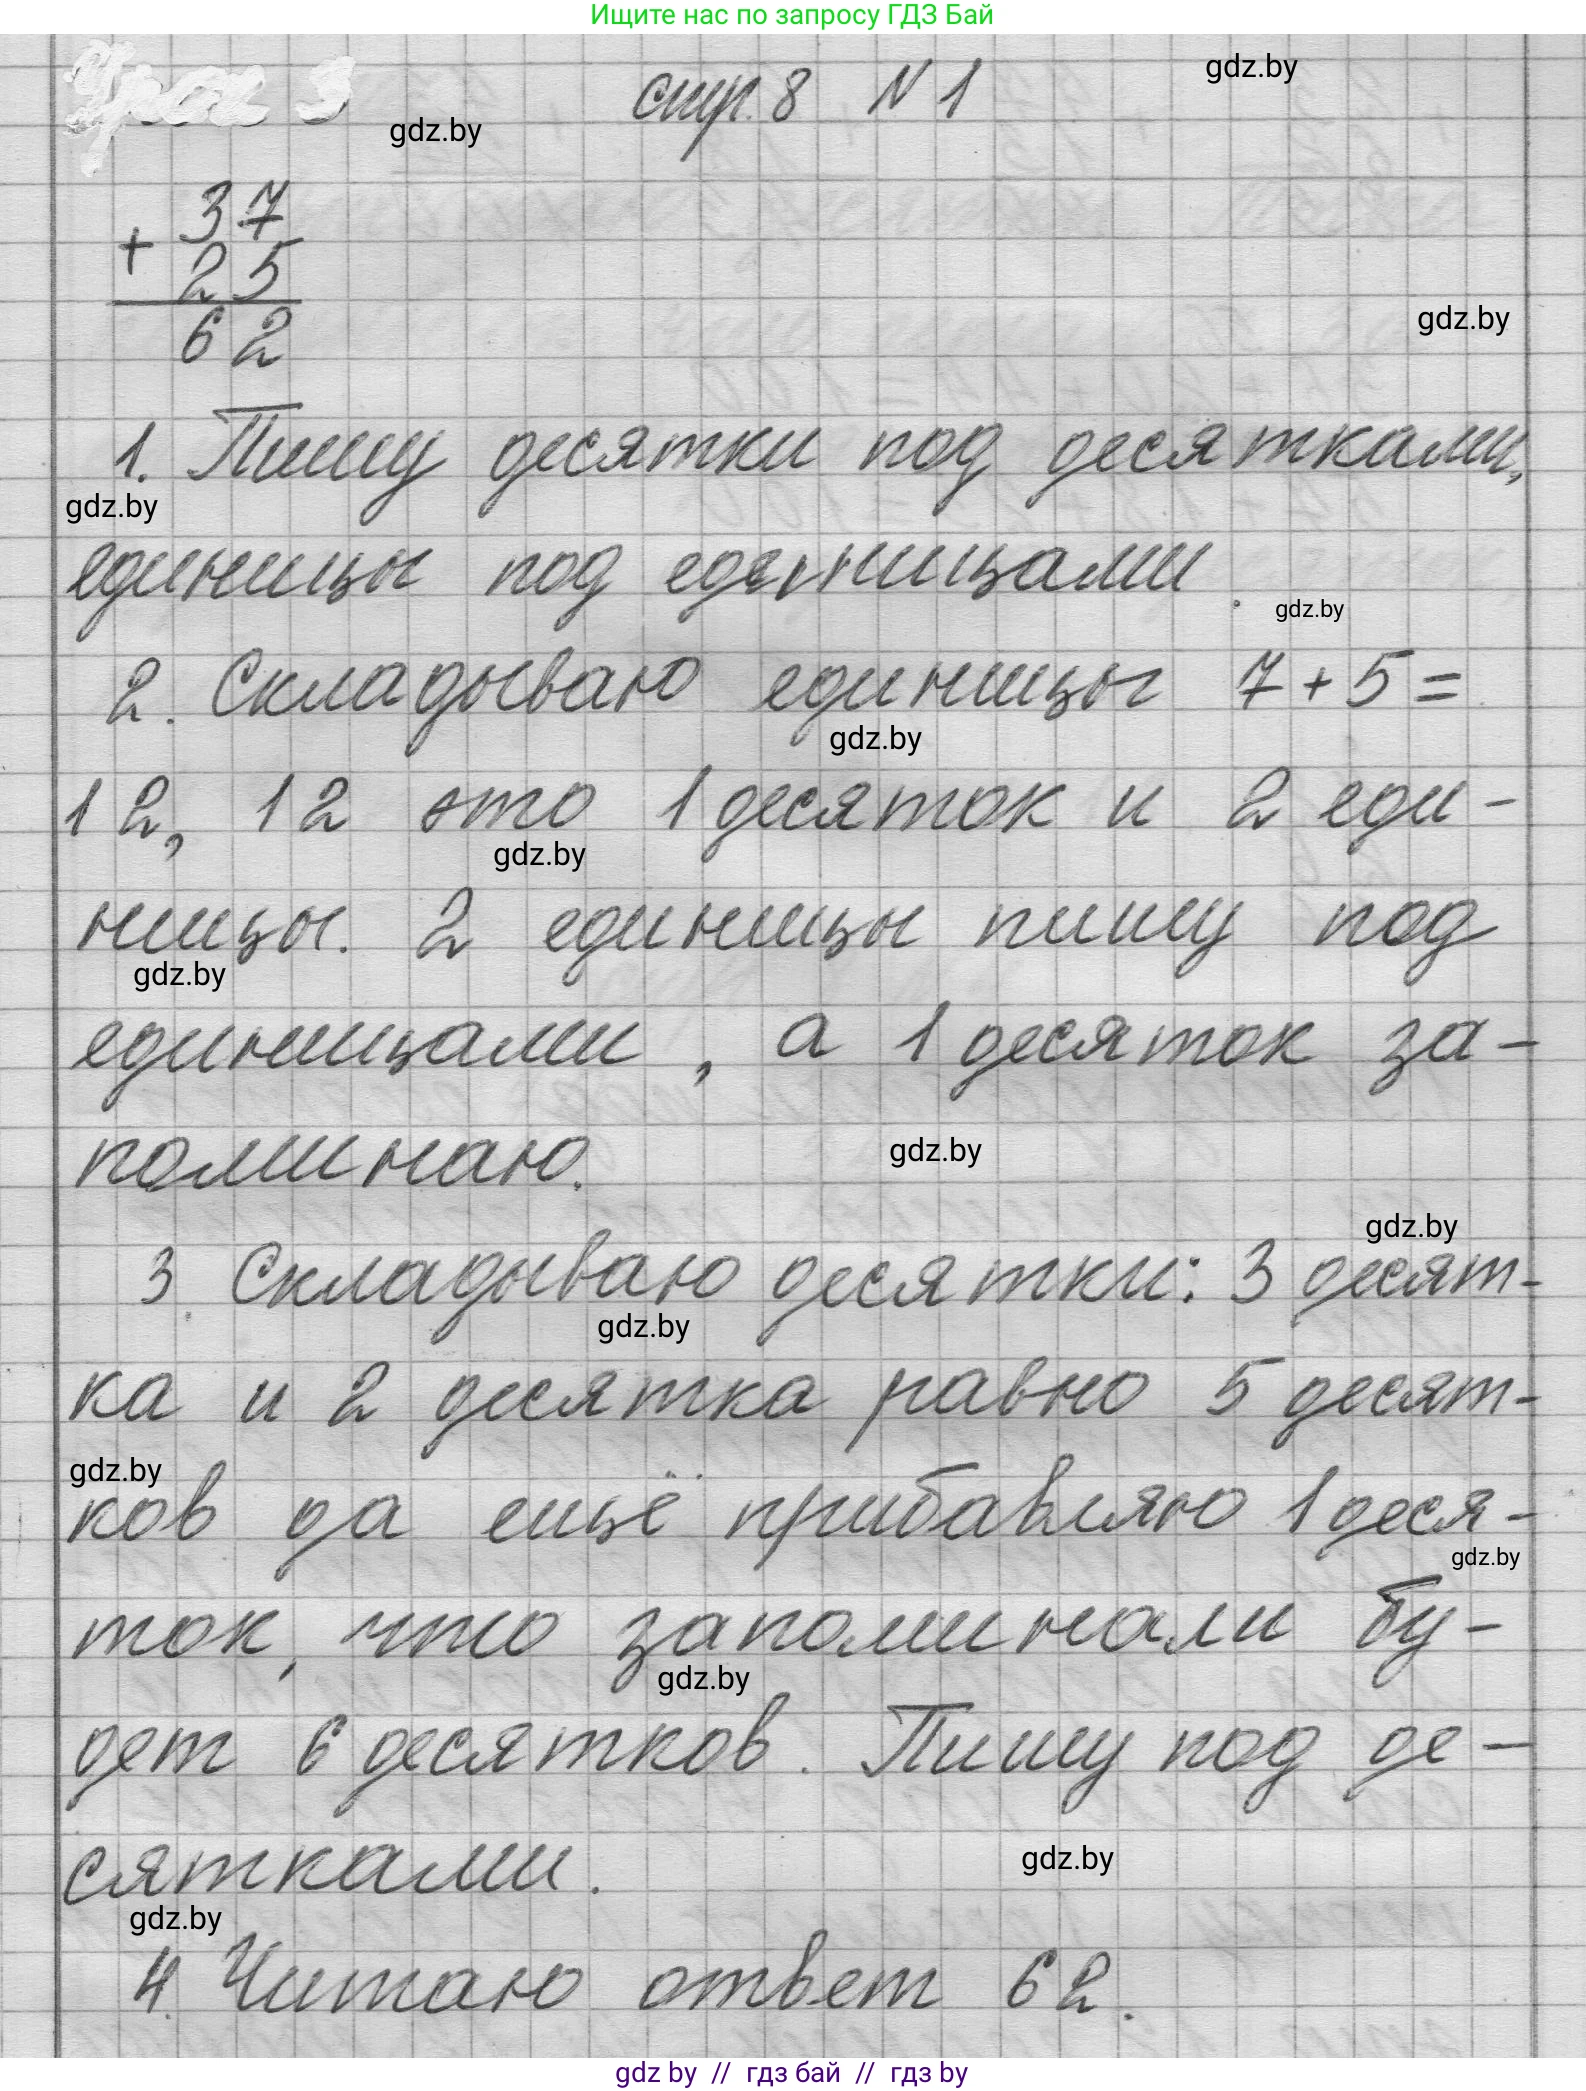 Ищите нас по запросу ГДЗ Бай
Урок 3 стр. 8 N 1 gdz.by
gdz.by
37
+ 25
62
gdz.by
1. Пишу десятки под десятками,
gdz.by
единицы под единицами.
gdz.by
2. Складываю единицы 7+5=
gdz.by
12, 12 это 1 десяток и 2 еди-
gdz.by
ницы. 2 единицы пишу под
gdz.by
единицами, а 1 десяток за-
поминаю.
gdz.by
gdz.by
3. Складываю десятки: 3 десят-
gdz.by
ка и 2 десятка равно 5 десят-
gdz.by
ков да ещё прибавляю 1 деся-
gdz.by
ток, что запоминали бу-
gdz.by
дет 6 десятков. Пишу под де-
сятками.
gdz.by
gdz.by
4. Читаю ответ 62.
gdz by // гдз бай // гдз by